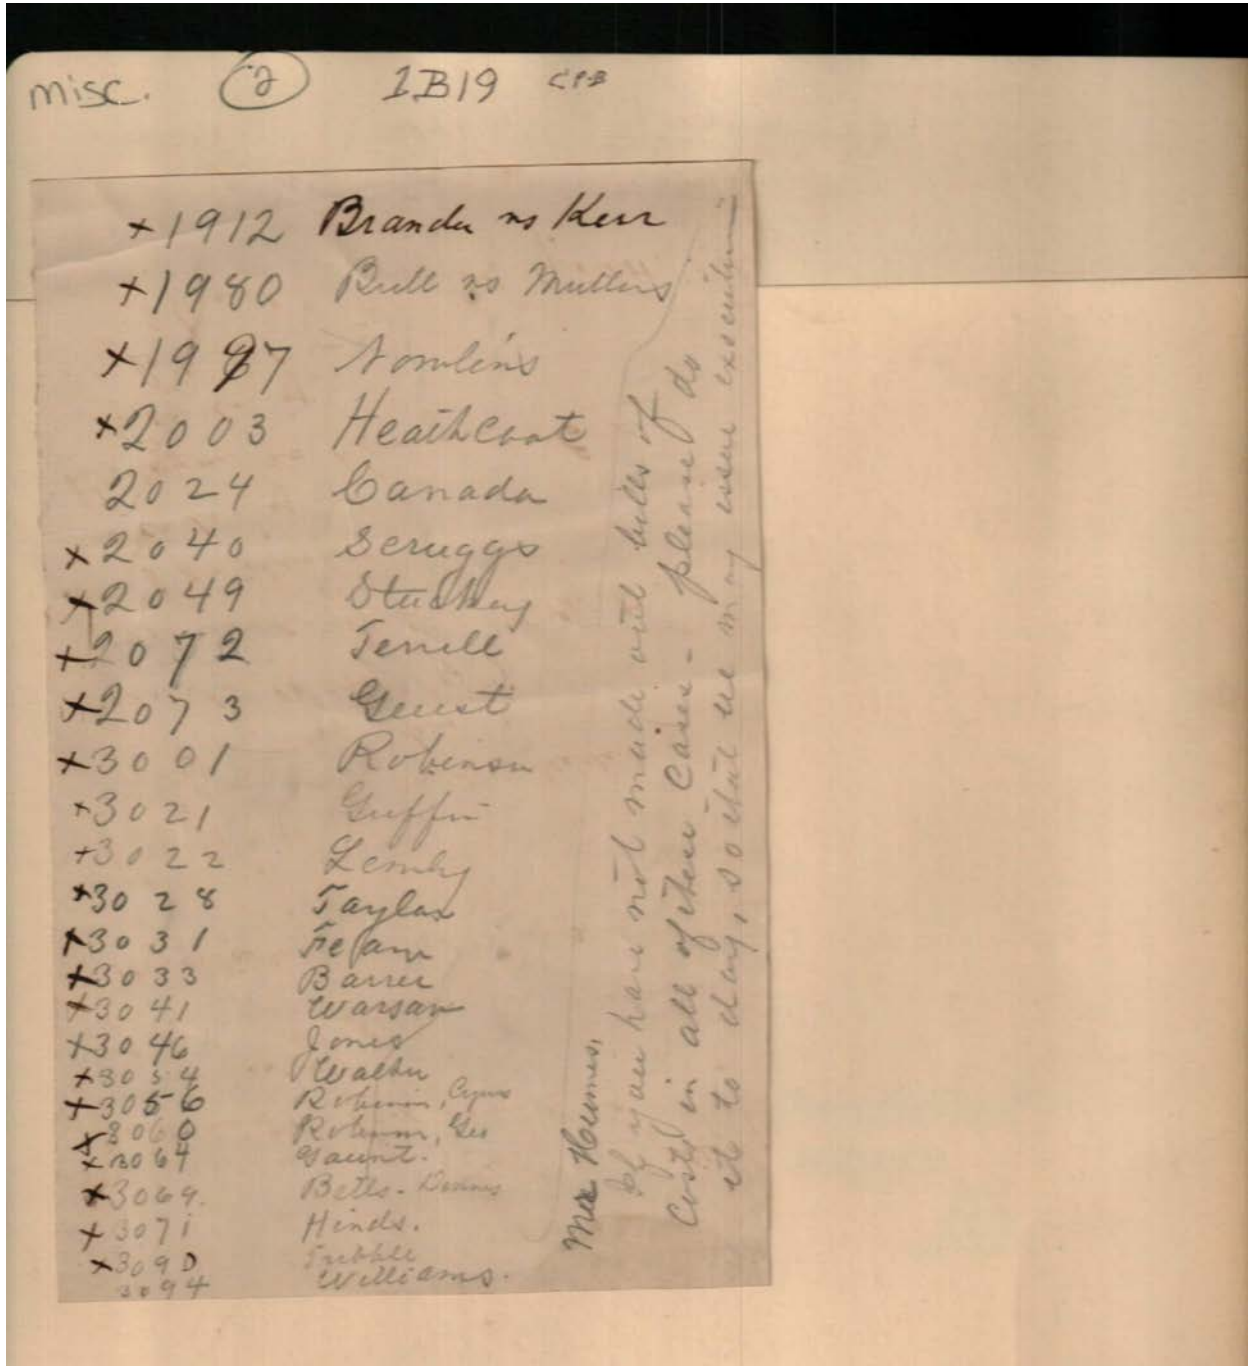 misc. 2 IB19 CPB
+1912 Brander vs Kerr
+1980 Bull vs Mullins
+1997 Nowlin's
+2003 Heathcoat
2024 Canada
+2040 Scruggs
+2049 Stuckey
+2072 Terrell
+2073 Guest
+3001 Robinson
+3021 Griffin
+3022
+3028 Taylor
+3031
+3033 Barrer
+3041
+3046 Jones
+3054 Walker
+3056 Robinson, Cyrus
+3060 Robinson, Geo
+3064 Gaunt.
+3069. Betts - Dennis
+3071 Hinds.
+3090 Tribble
3094 Williams.
Mr Humes,
If you have not made out bills of
costs in all of these cases - please do
it to day, so that we may issue executions